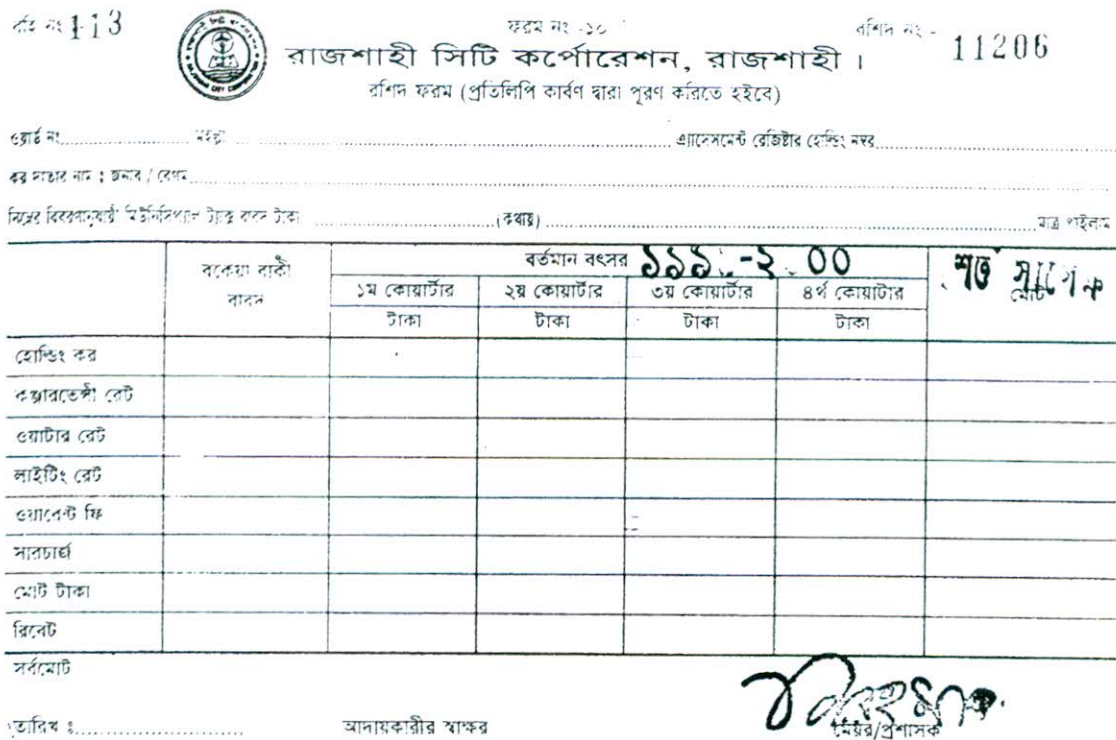 বহি নং 113 ফরম নং -১০ রশিদ নং - 11206
রাজশাহী সিটি কর্পোরেশন, রাজশাহী ।
রশিদ ফরম (প্রতিলিপি কার্বণ দ্বারা পূরণ করিতে হইবে)
ওয়ার্ড নং.................... মহল্লা .................... এ্যাসেসমেন্ট রেজিষ্টার হোল্ডিং নম্বর....................
কর দাতার নাম : জনাব / বেগম....................
নিম্নের বিবরণানুযায়ী মিউনিসিপ্যাল ট্যাক্স বাবদ টাকা ....................(কথায়).................... মাত্র পাইলাম
বকেয়া বাকী বাবদ বর্তমান বৎসর শর্ত সাপেক্ষ মোট
১ম কোয়ার্টার ২য় কোয়ার্টার ৩য় কোয়ার্টার ৪র্থ কোয়ার্টার
টাকা টাকা টাকা টাকা
হোল্ডিং কর
কঞ্জারভেন্সী রেট
ওয়াটার রেট
লাইটিং রেট
ওয়ারেন্ট ফি
সারচার্য
মোট টাকা
রিবেট
সর্বমোট
তারিখ ঃ............................ আদায়কারীর স্বাক্ষর মেয়র/প্রশাসক